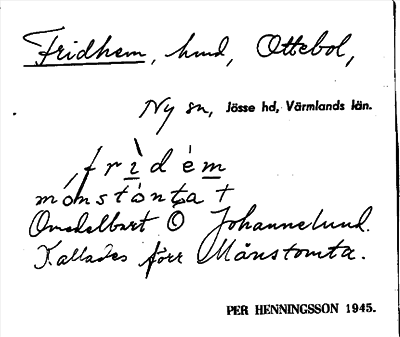 Fridhem, hmd, Ottebol,
Ny sn, Jösse hd, Värmlands län.
frìdèm
mónstònta t
Omedelbart Ö Johannelund.
Kallades förr Månstomta.
PER HENNINGSSON 1945.